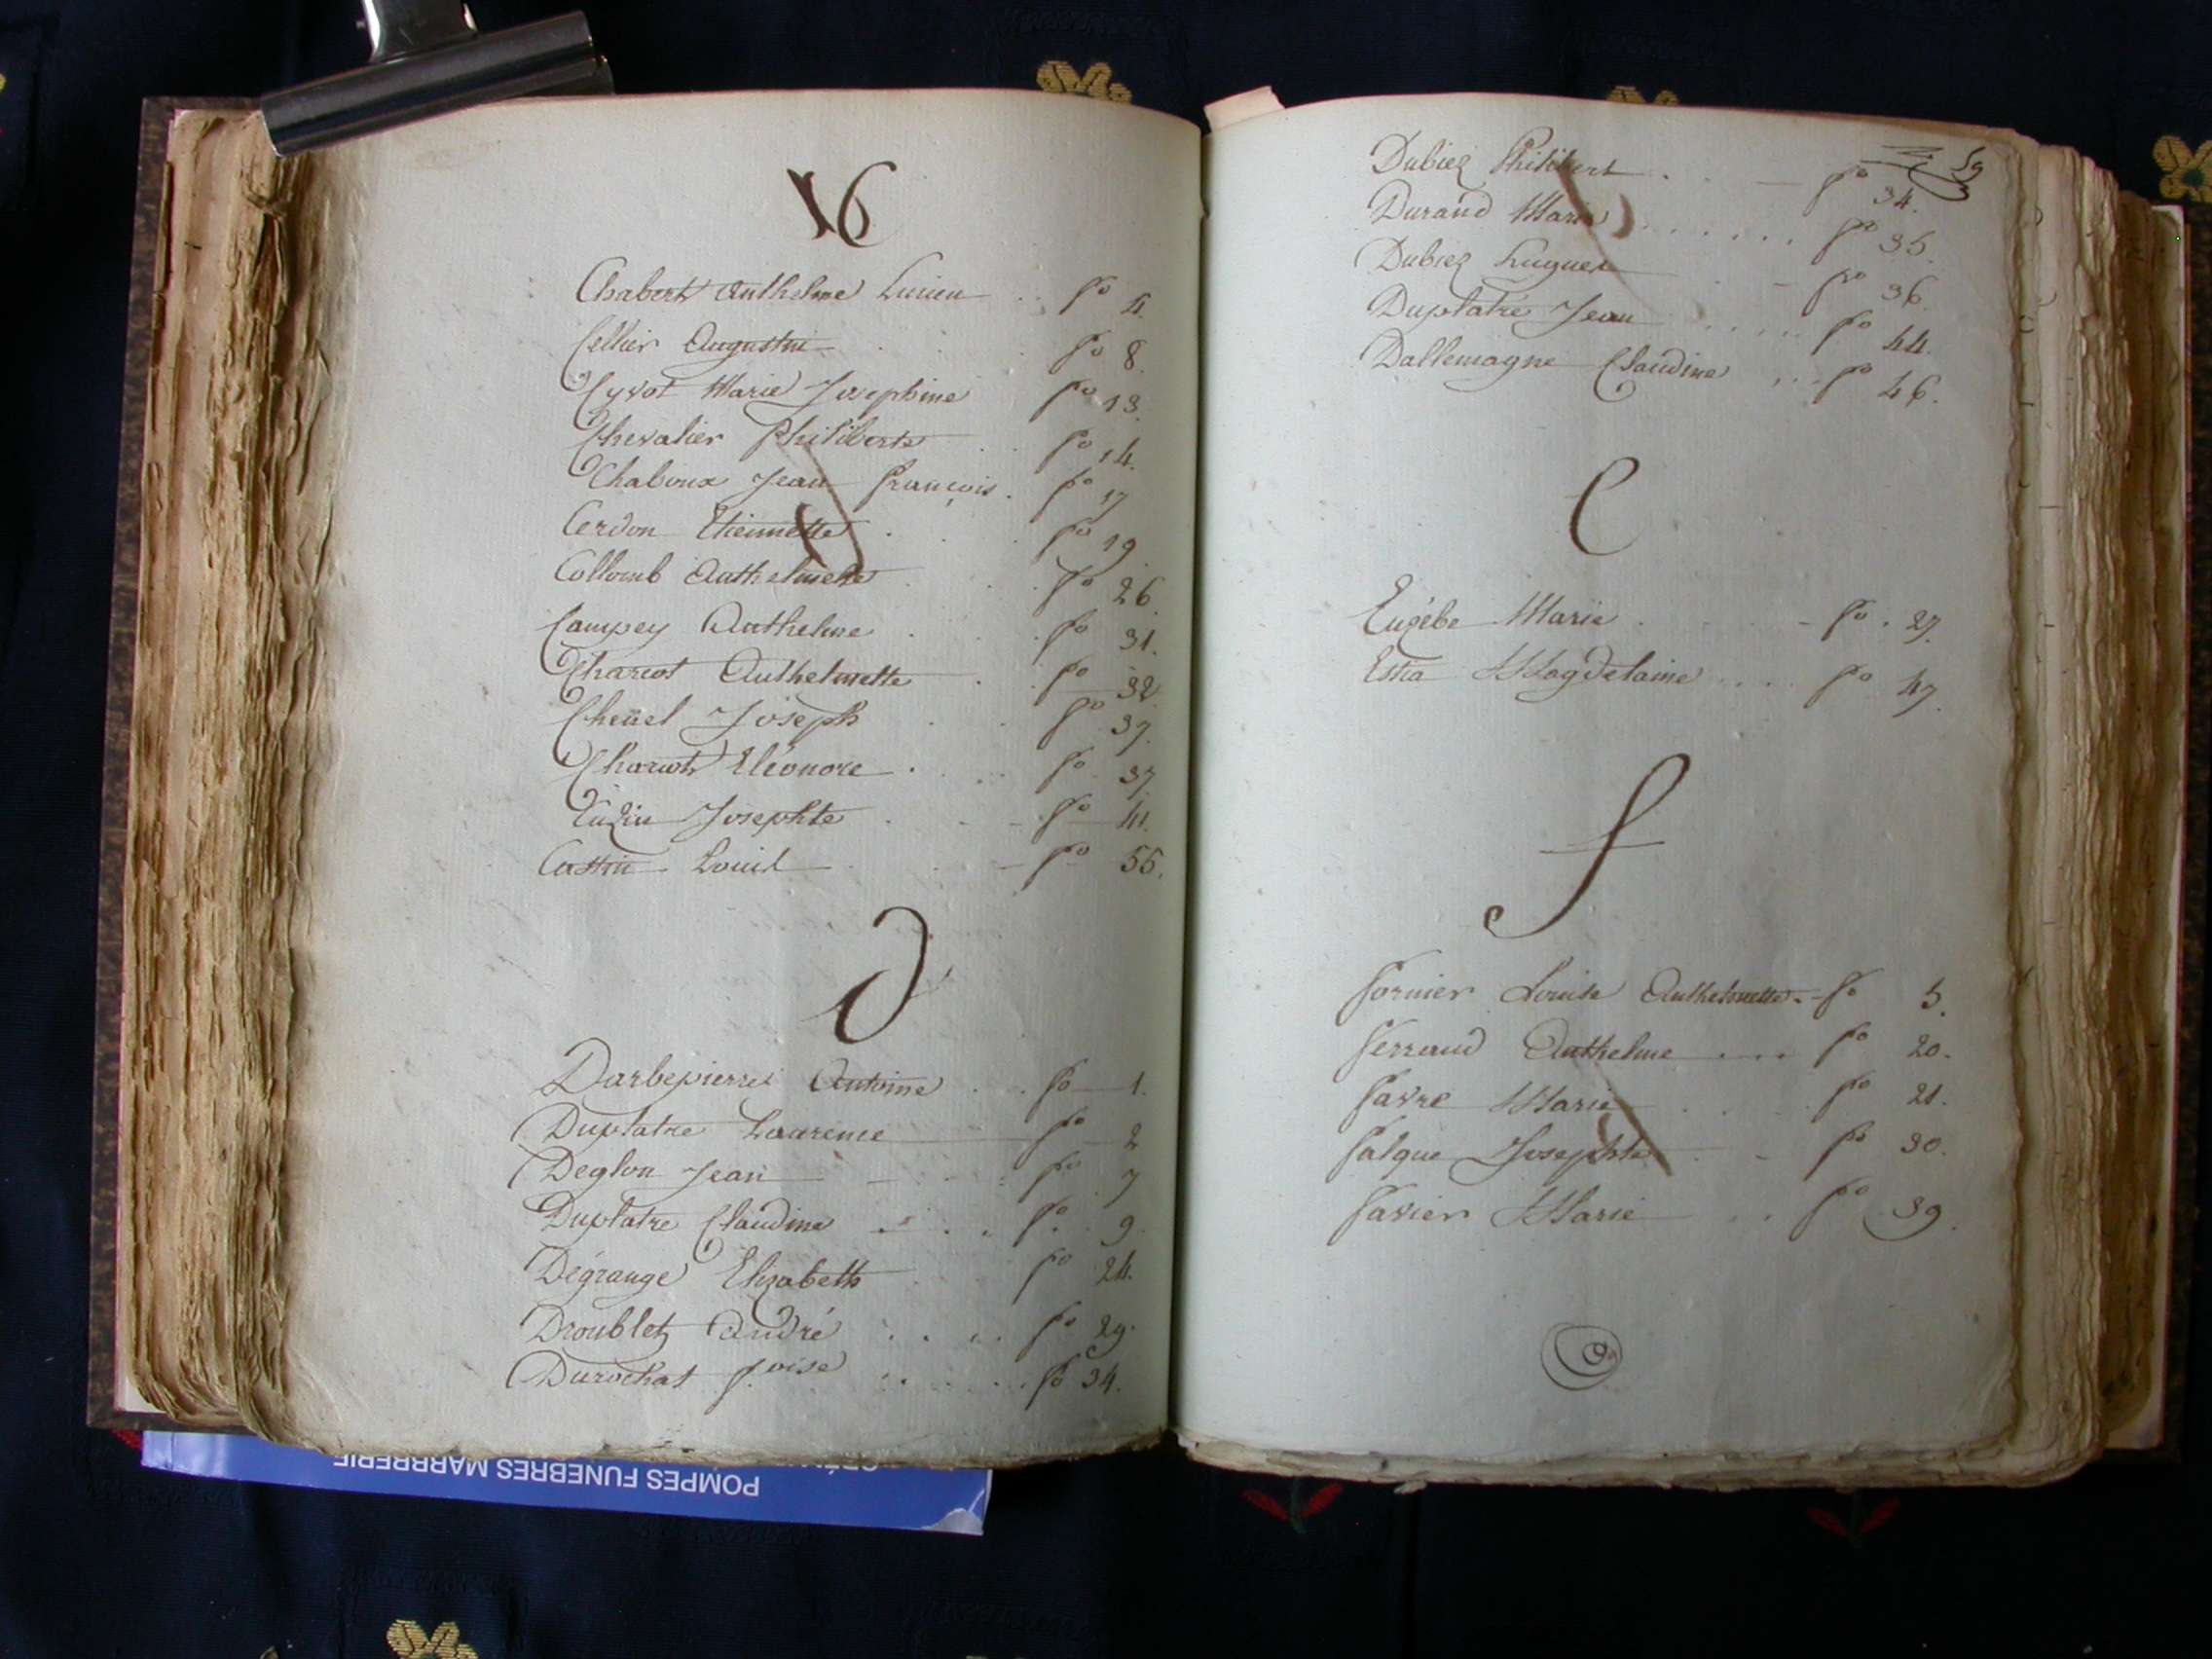 C
Chabert Anthelme Lucien . . fo 4.
Cellier Augustin . . . fo 8.
Cyvot Marie Josephine fo 13.
Chevalier Philiberte . . fo 14.
Chaboux Jean François . fo 17
Cerdon Etiennette . . . fo 19
Collomb Anthelmette . . . fo 26.
Campey Anthelme . . . fo 31.
Charcot Anthelmette . . fo 32.
Cheüel Joseph . . fo 37.
Charcot Eléonore . . . fo 37
Cuzin Josephte . - - fo 41.
Costin Louis . . - fo 56.
D
Darbepierre Antoine . . fo 1.
Duplatre Laurence fo 2
Deglon Jean fo 7
Duplatre Claudine . . . . fo 9.
Dégrange Elizabeth fo 24.
Droublet André . . . . fo 29.
Durochat f.oise . . . . . . fo 34.
59
Dubiez Philibert . . - fo 34.
Durand Marie . . . . . . . fo 35.
Dubiez huguet . - fo 36.
Duplatre Jean . . . . . fo 44.
Dallemagne Claudine . . . fo 46.
E
Eugébe Marie . . . - fo . 27.
Estia Magdelaine . . . . fo 47.
f
fornier Louise Anthelmette . - fo 5.
ferraud Anthelme . . . . fo 20.
favre Marie . . . fo 21.
falque Josephte . - fo 30.
favier Marie . . . fo 39.
POMPES FUNEBRES MARBRERIE